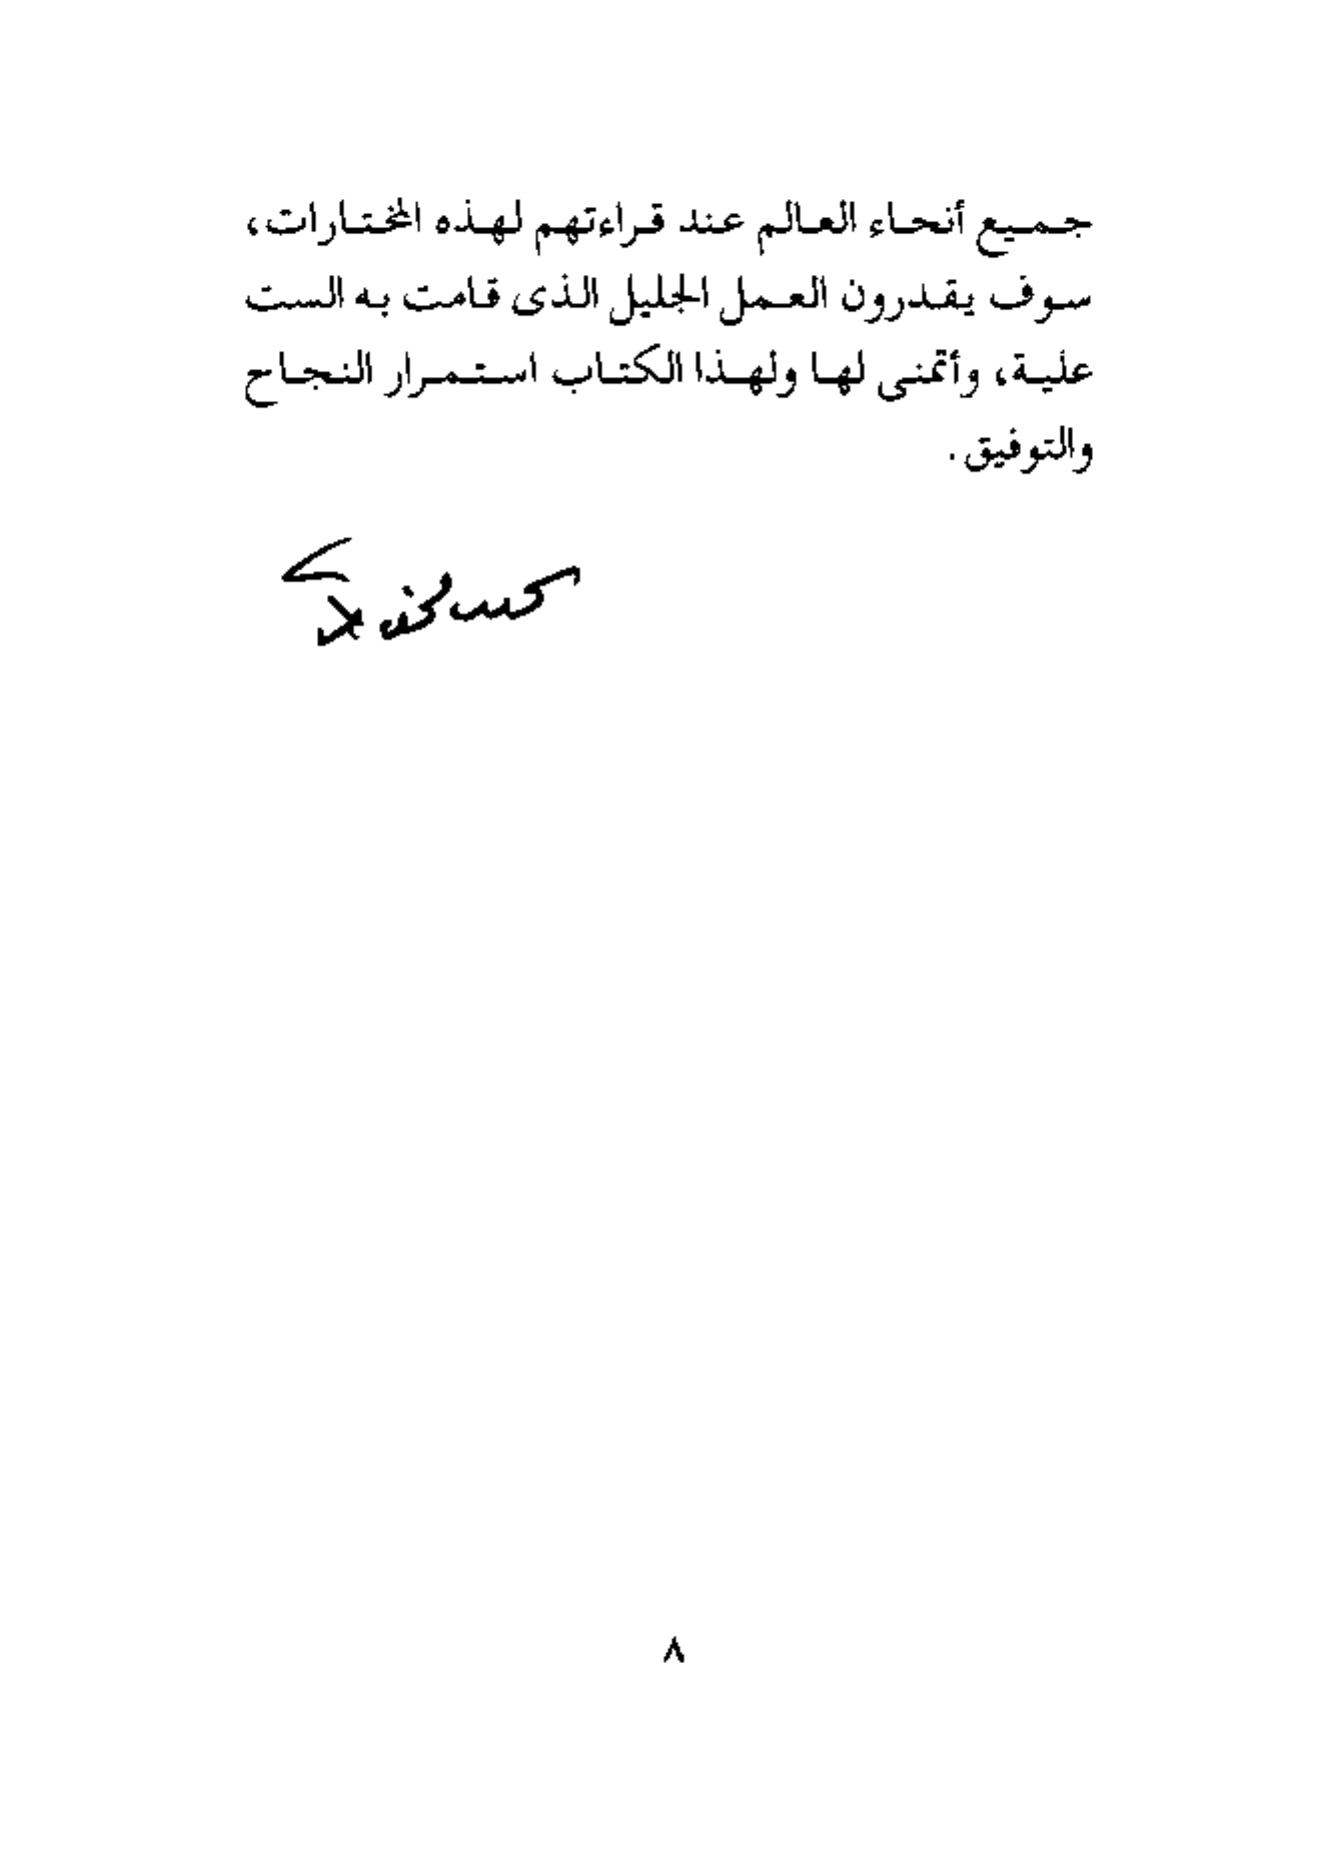 جميع أنحاء العالم عند قراءتهم لهذه المختارات،
سوف يقدرون العمل الجليل الذى قامت به الست
علية، وأتمنى لها ولهذا الكتاب استمرار النجاح
والتوفيق.
٨